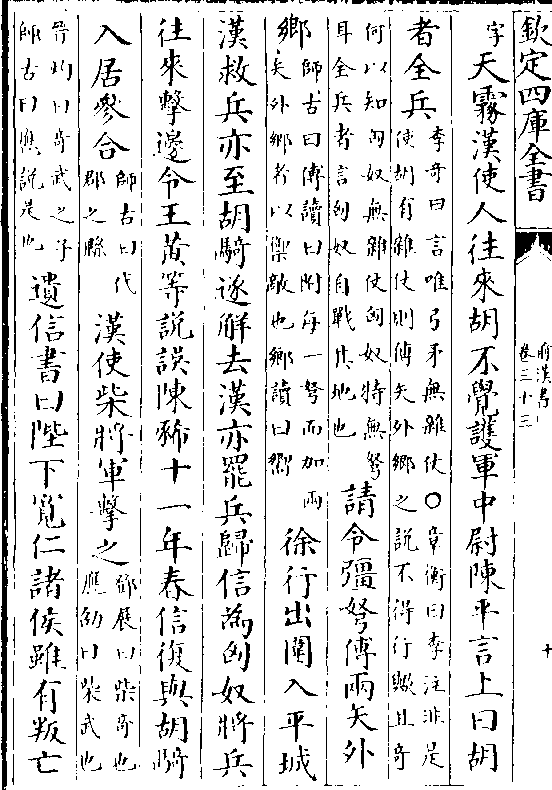 欽定四庫全書
前漢書
卷三十三
十
字天霧漢使人往來胡不覺護軍中尉陳平言上曰胡
者全兵
李奇曰言唯弓矛無雜仗○章衡曰李注非是
使胡有雜仗則傅矢外鄉之說不得行歟且奇
何以知匈奴無雜仗匈奴特無弩
耳全兵者言匈奴自戰其地也
請令彊弩傅兩矢外
鄉
師古曰傅讀曰附每一弩而加兩
矢外鄉者以禦敵也鄉讀曰嚮
徐行出圍入平城
漢救兵亦至胡騎遂解去漢亦罷兵歸信為匈奴將兵
往來擊邊令王黃等說誤陳豨十一年春信復與胡騎
入居參合
師古曰代
郡之縣
漢使柴將軍擊之
鄧展曰柴奇也
應劭曰柴武也
晉灼曰奇武之子
師古曰應說是也
遺信書曰陛下寬仁諸侯雖有叛亡